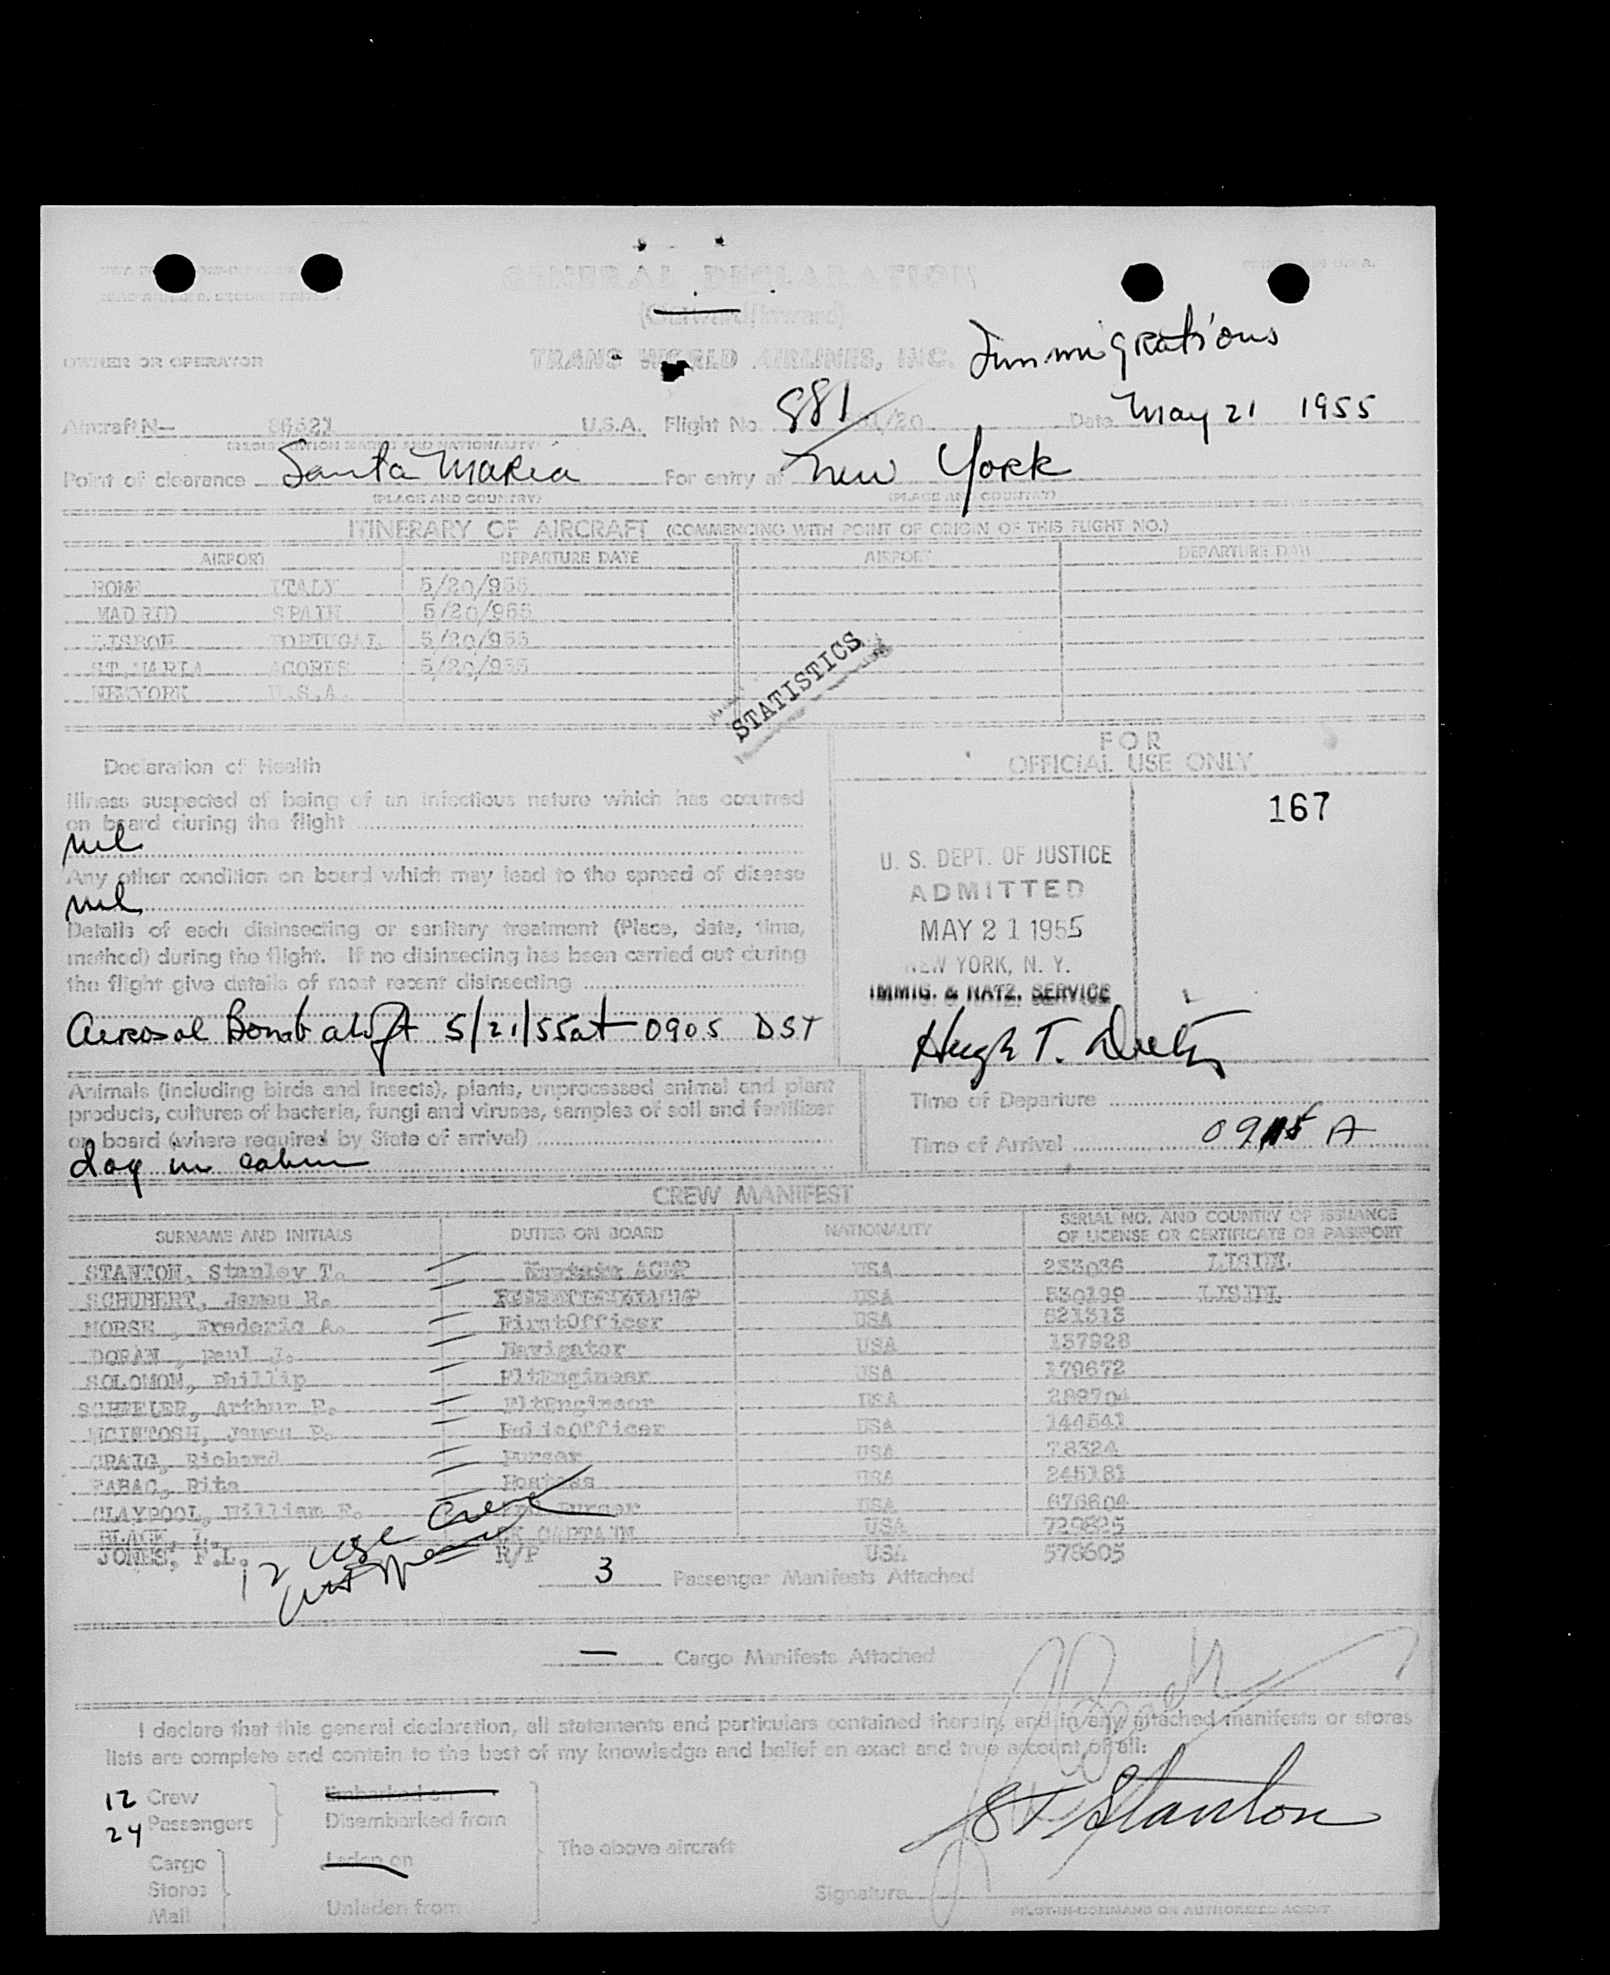 GENERAL DECLARATION
(Outward/Inward)
OWNER OR OPERATOR TRANS WORLD AIRLINES, INC.
Immigrations
Aircraft N- U.S.A. Flight No. 881 /20 Date May 21 1955
Point of clearance Santa Maria For entry at New York
(PLACE AND COUNTRY) (PLACE AND COUNTRY)
ITINERARY OF AIRCRAFT (COMMENCING WITH POINT OF ORIGIN OF THIS FLIGHT NO.)
AIRPORT DEPARTURE DATE AIRPORT DEPARTURE DATE
ROME ITALY 5/20/955
MADRID SPAIN 5/20/955
LISBON PORTUGAL 5/20/955
ST.MARIA ACORES 5/20/955
NEWYORK U.S.A.
STATISTICS
FOR
OFFICIAL USE ONLY
167
Declaration of Health
Illness suspected of being of an infectious nature which has occurred
on board during the flight
nil
Any other condition on board which may lead to the spread of disease
nil
Details of each disinsecting or sanitary treatment (Place, date, time,
method) during the flight. If no disinsecting has been carried out during
the flight give details of most recent disinsecting
Aerosol Bomb aloft 5/21/55 at 0905 DST
U. S. DEPT. OF JUSTICE
ADMITTED
MAY 21 1955
NEW YORK, N. Y.
IMMIG. & NATZ. SERVICE
Hugh T.
Animals (including birds and insects), plants, unprocessed animal and plant
products, cultures of bacteria, fungi and viruses, samples of soil and fertilizer
on board (where required by State of arrival)
dog in cabin
Time of Departure
Time of Arrival A
CREW MANIFEST
SURNAME AND INITIALS DUTIES ON BOARD NATIONALITY SERIAL NO. AND COUNTRY OF ISSUANCE
OF LICENSE OR CERTIFICATE OR PASSPORT
STANTON, Stanley T. USA 233036
SCHUBERT, James R. USA 530199
MORSE , Frederic A. FirstOfficer USA 521313
DORAN , Paul J. Navigator USA 137928
SOLOMON, Phillip FltEngineer USA 179672
Arthur FltEngineer USA 289704
MCINTOSH, James RadioOfficer USA 144541
CRAIG, Richard Purser USA 78324
Rita Hostess USA 245181
CLAYPOOL, William Purser USA 676604
BLACK, CAPTAIN USA 729825
JONES, F.L. R/P USA 578605
12 USC Crew
3 Passenger Manifests Attached
— Cargo Manifests Attached
I declare that this general declaration, all statements and particulars contained therein, and in any attached manifests or stores
lists are complete and contain to the best of my knowledge and belief an exact and true account of all:
12 Crew Embarked on
24 Passengers Disembarked from
The above aircraft
Cargo Laden on
Stores
Mail Unladen from
ST Stanton
Signature
PILOT-IN-COMMAND OR AUTHORIZED AGENT